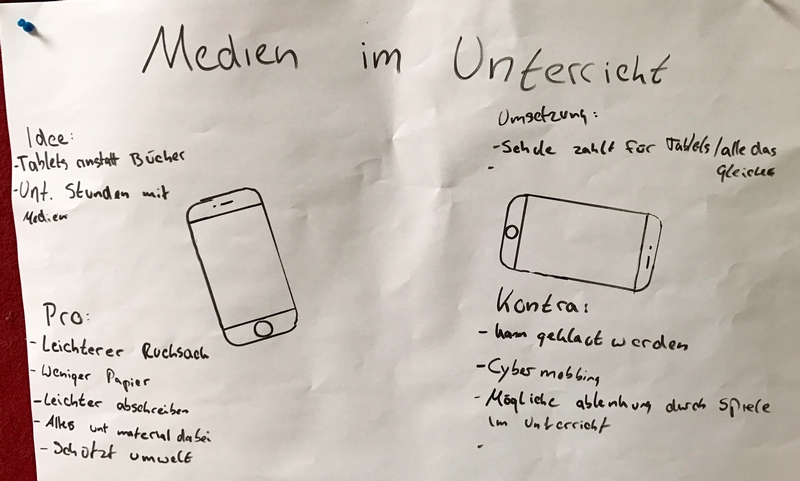 Medien im Unterricht
Idee:
-Tablets anstatt Bücher
-Unt. Stunden mit
Medien
Umsetzung:
-Schule zahlt für Tablets/alle das
Gleiche
-
Pro:
-Leichterer Rucksack
-Weniger Papier
-Leichter abschreiben
-Alles unt material dabei
-Schützt umwelt
Kontra:
-kann geklaut werden
-Cybermobbing
-Mögliche ablenkung durch Spiele
im Unterricht
-